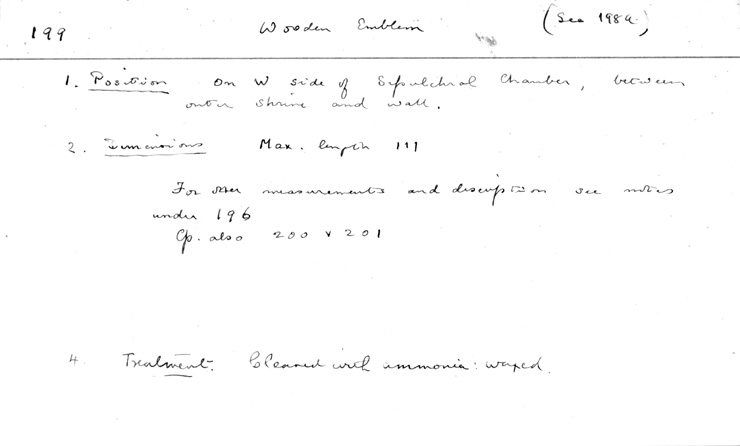 199 Wooden Emblem (See 198a)
1. Position On W side of Sepulchral Chamber, between
outer shrine and wall.
2. Dimensions Max. length 111
For other measurements and description see notes
under 196
Cp. also 200 & 201
4. Treatment. Cleaned with ammonia: waxed.